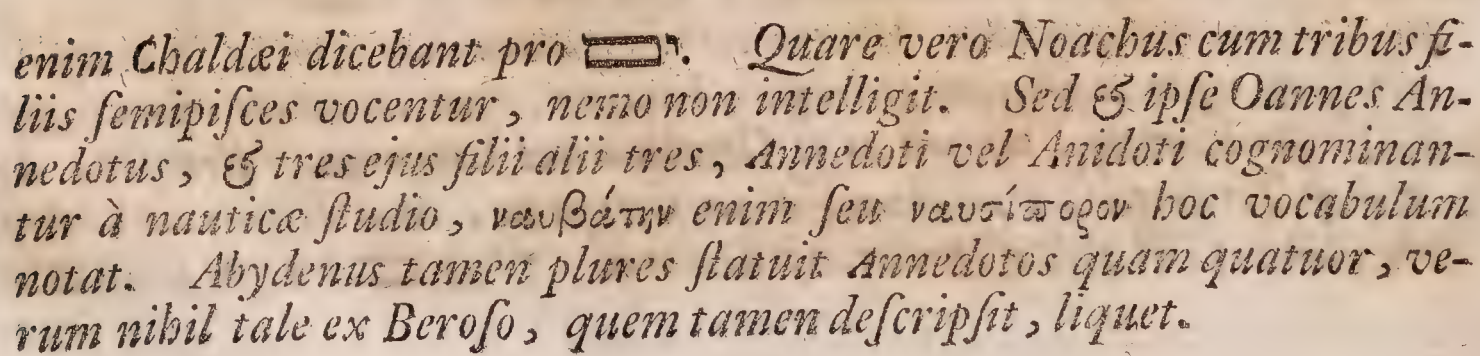 enim Chaldæi dicebant pro י. Quare vero Noachus cum tribus fi-
liis ſemipiſces vocentur, nemo non intelligit. Sed & ipſe Oannes An-
nedotus, & tres ejus filii alii tres, Annedoti vel Anidoti cognominan-
tur à nauticæ ſtudio, ναυβάτην enim ſeu ναυσίπορον hoc vocabulum
notat. Abydenus tamen plures ſtatuit Annedotos quam quatuor, ve-
rum nihil tale ex Beroſo, quem tamen deſcripſit, liquet.